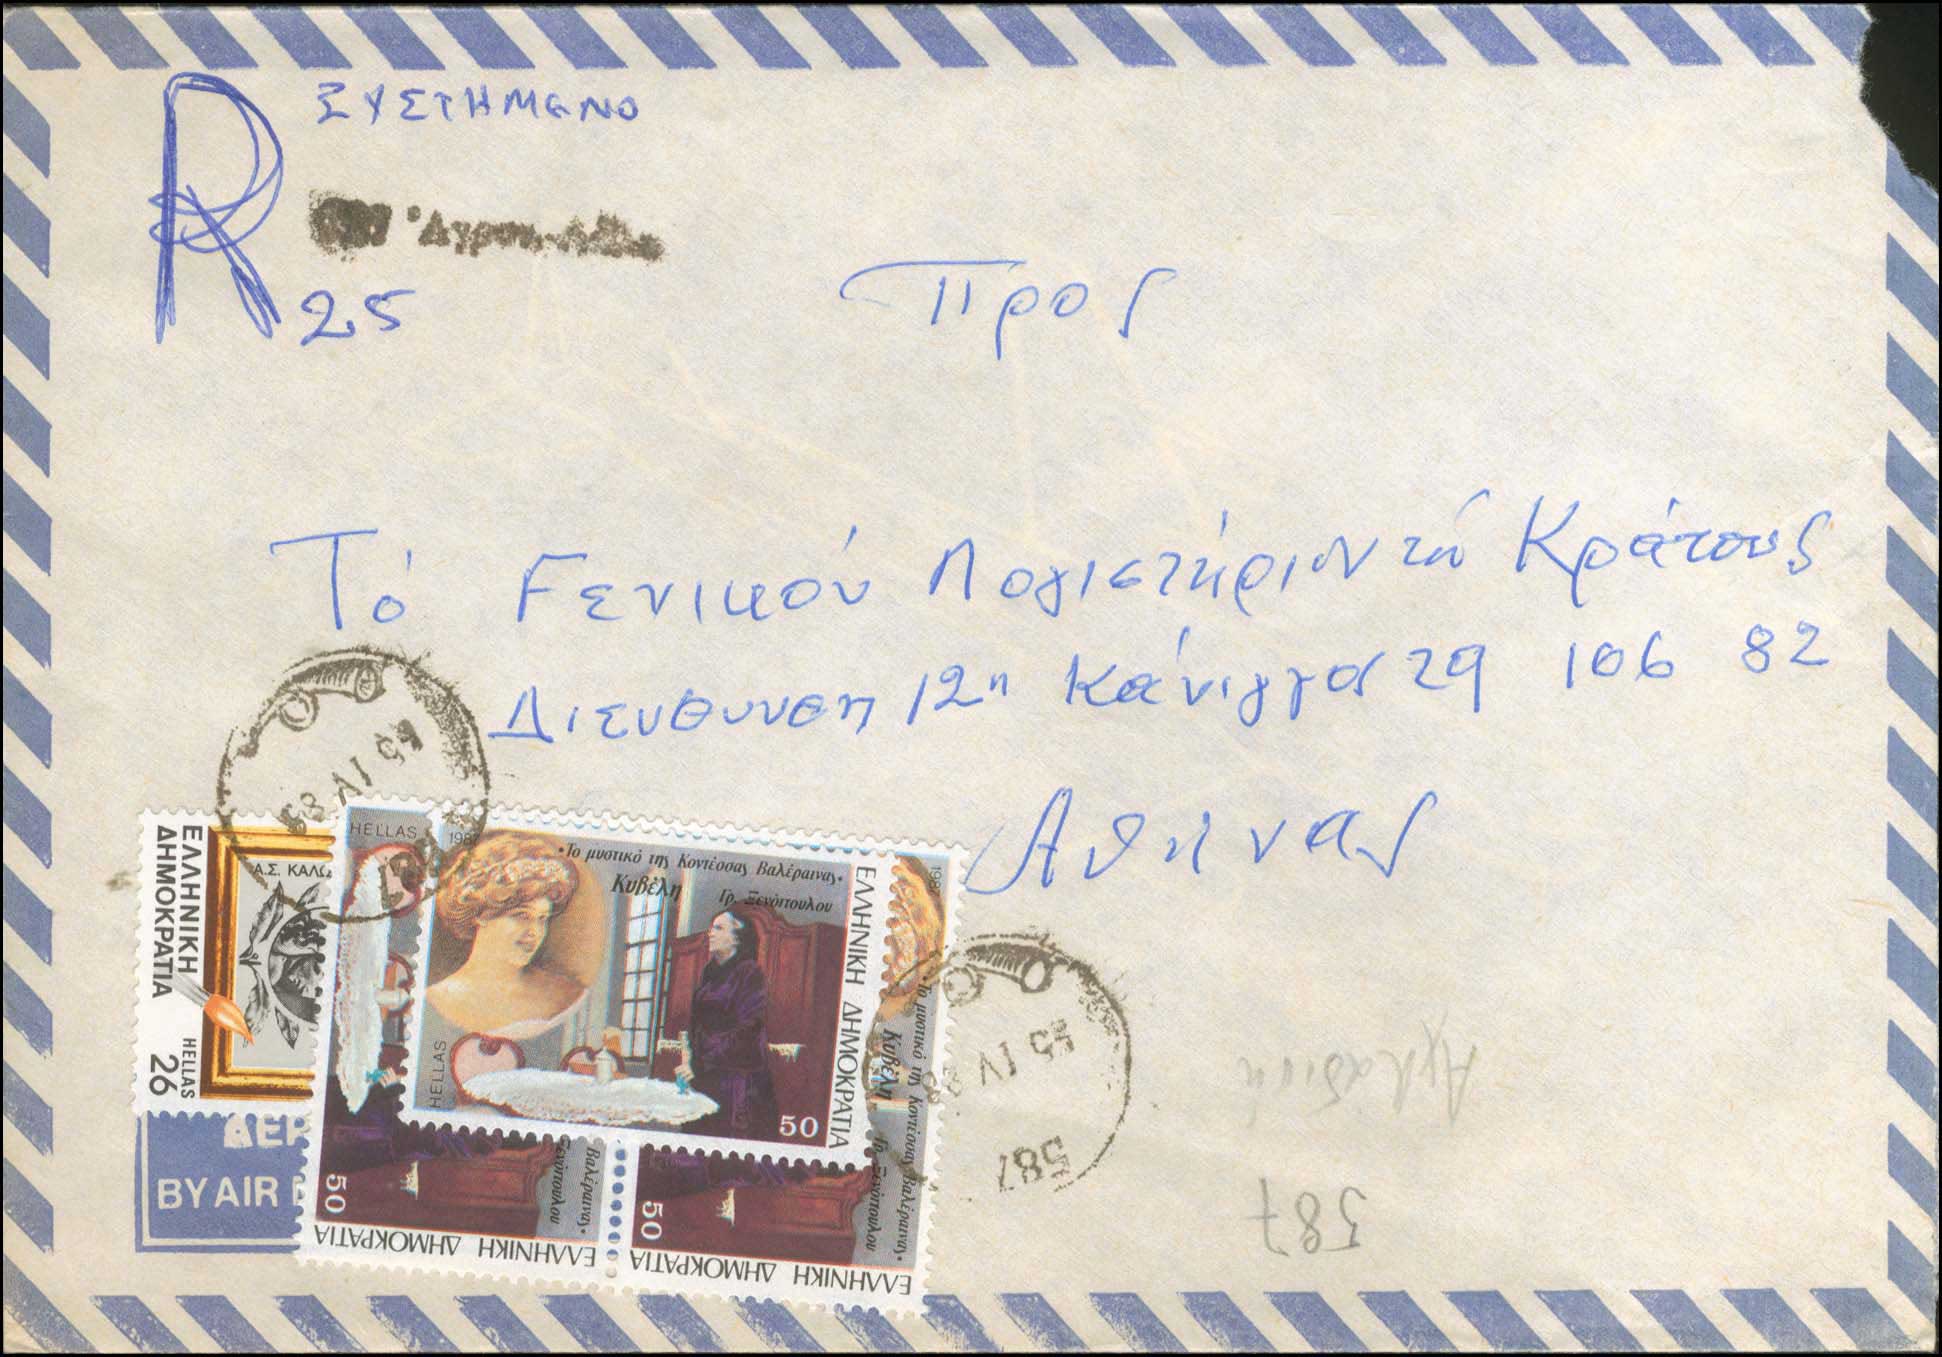 R ΣΥΣΤΗΜΕΝΟ
25
Προς
Τό Γενικόν Λογιστήριον τού Κράτους
Διευθυνση 12η Κάνιγγος 29 106 82
Αθηνας
ΕΛΛΗΝΙΚΗ ΔΗΜΟΚΡΑΤΙΑ
HELLAS 26
Α.Σ. ΚΑΛΩ
HELLAS 1987
•Το μυστικό της Κοντέσσας Βαλέραινας•
Κυβέλη
Γρ. Ξενόπουλου
ΕΛΛΗΝΙΚΗ ΔΗΜΟΚΡΑΤΙΑ
HELLAS
50
1987
•Το μυστικό της Κοντέσσας Βαλέραινας•
Κυβέλη
Γρ. Ξενόπουλου
50
ΕΛΛΗΝΙΚΗ ΔΗΜΟΚΡΑΤΙΑ
Βαλέραινας•
Ξενόπουλου
50
ΕΛΛΗΝΙΚΗ ΔΗΜΟΚΡΑΤΙΑ
ΑΕΡ
BY AIR
IV 89
IV
587
587